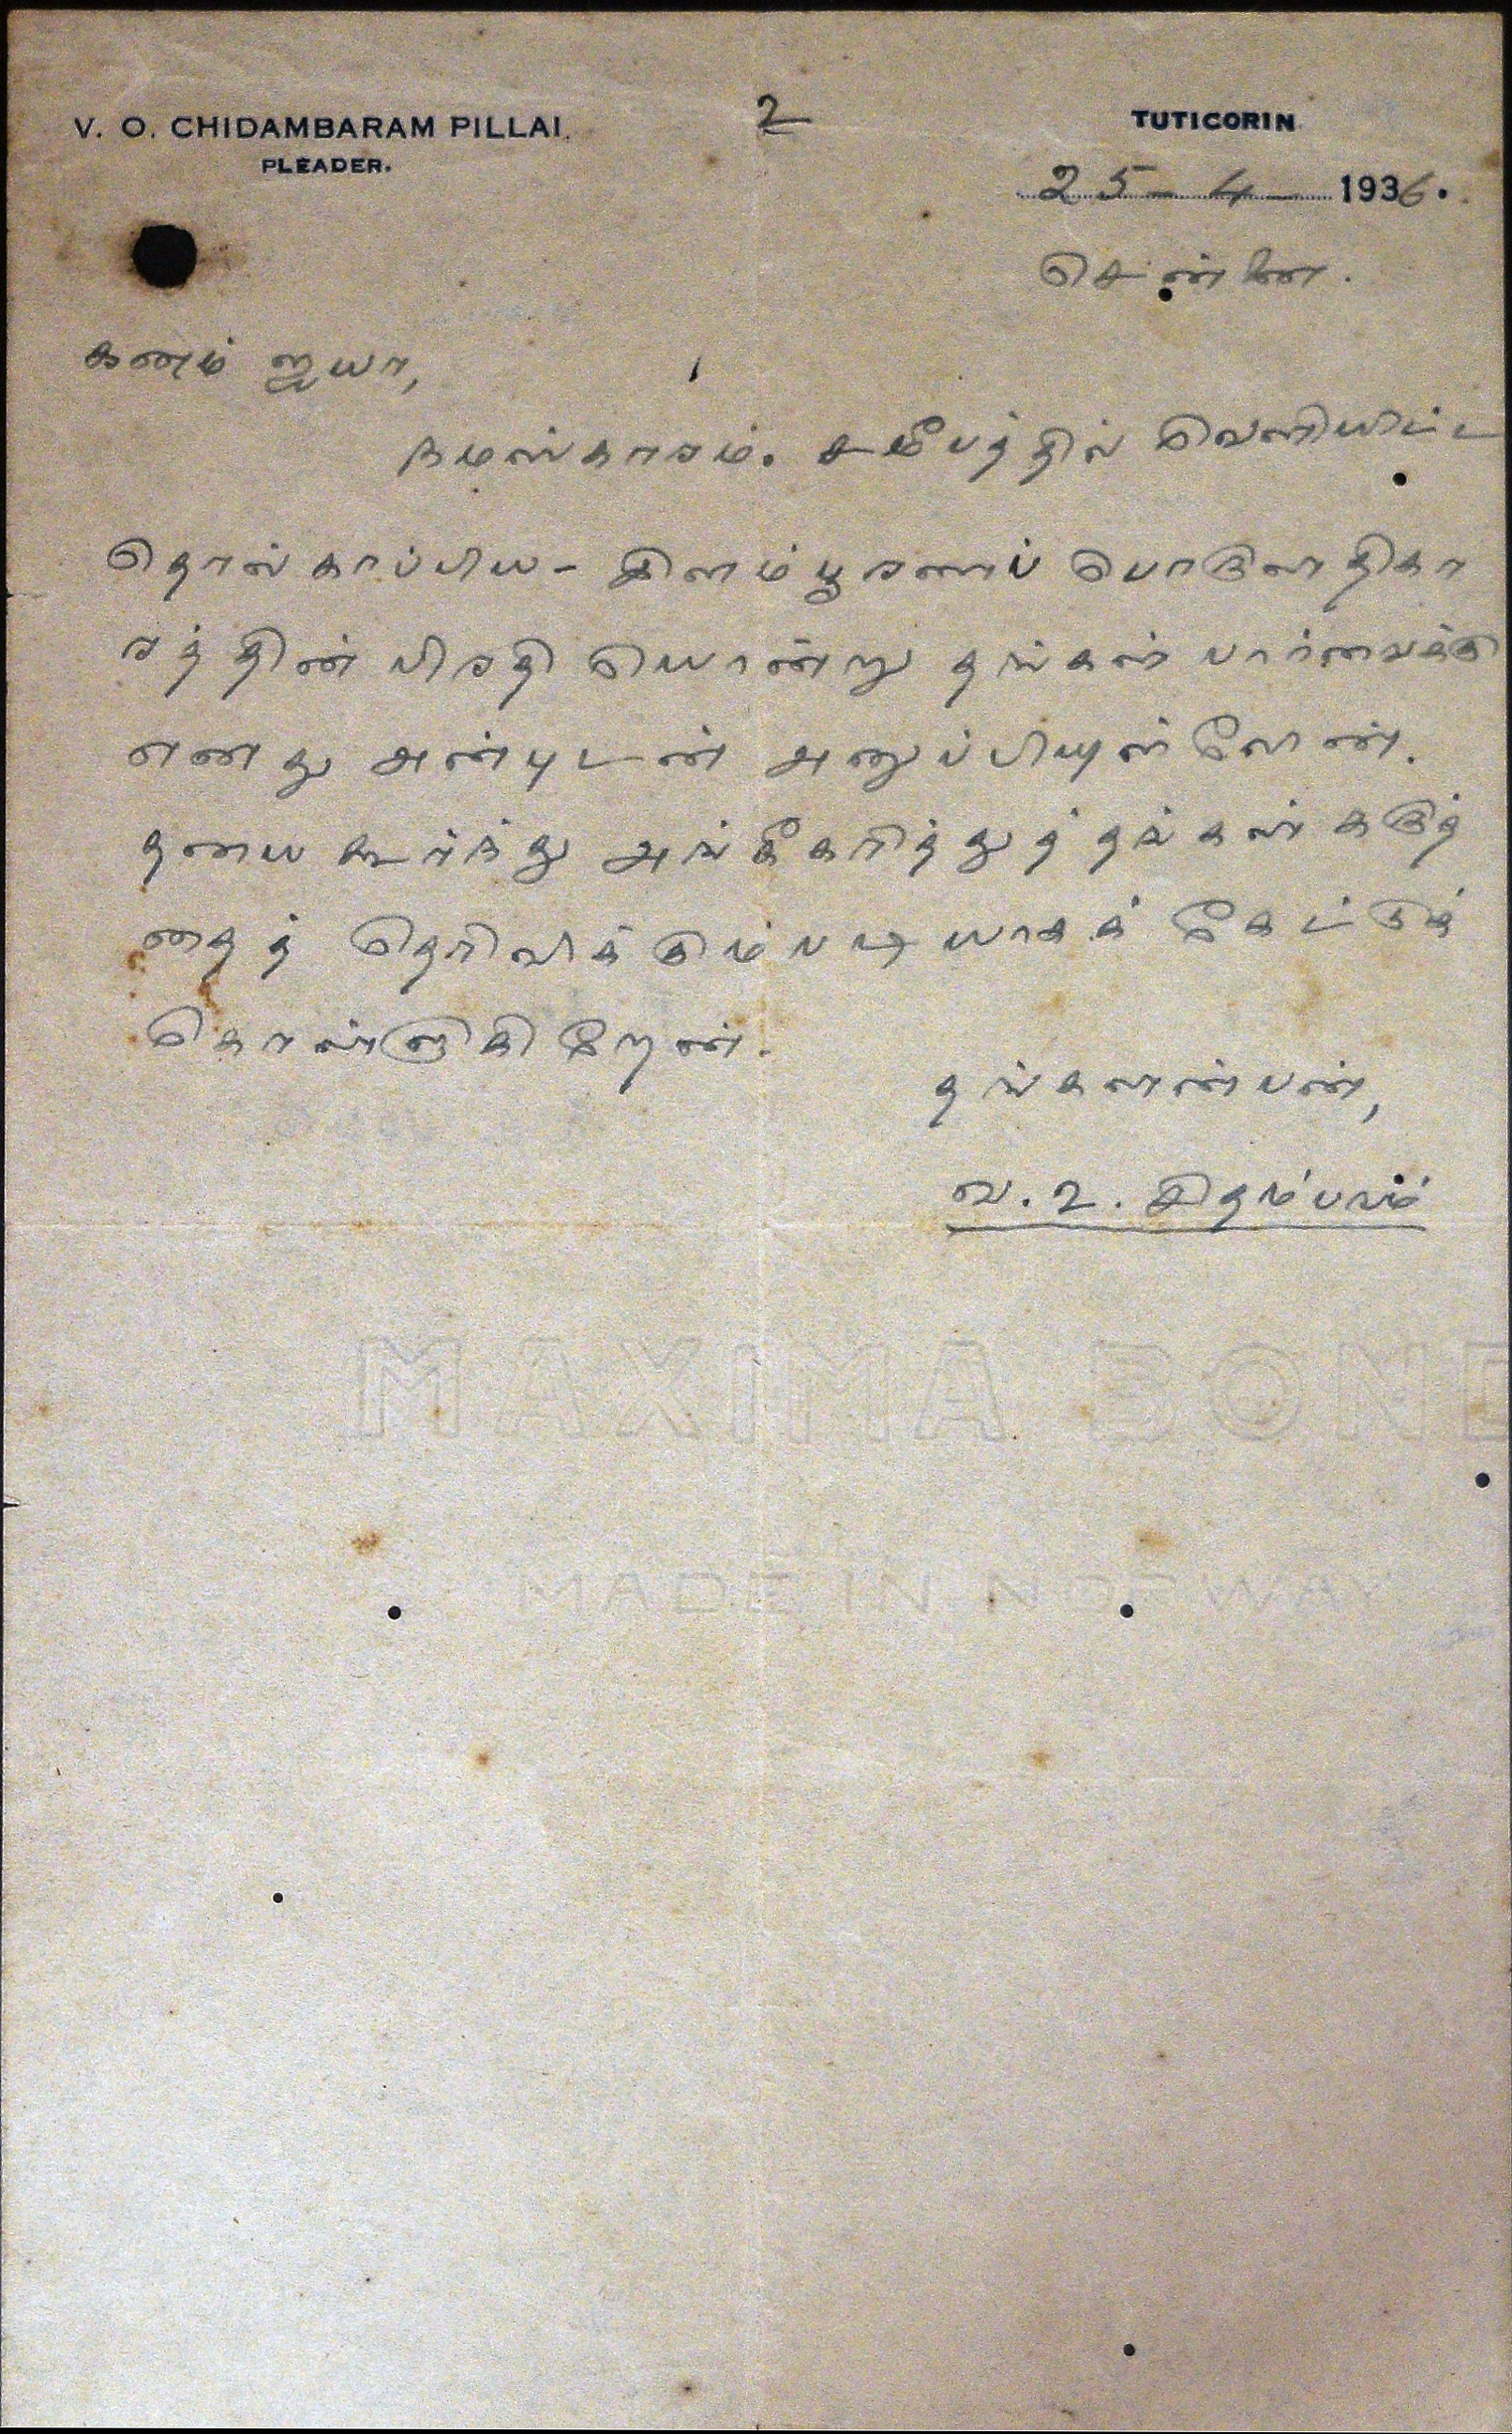 V. O. CHIDAMBARAM PILLAI.
PLEADER.
உ
TUTICORIN
25-4-1936.
சென்னை.
கனம் ஐயா,
நமஸ்காரம். சமீபத்தில் வெளியிட்ட
தொல்காப்பிய - இளம்பூரணப் பொருளதிகா
ரத்தின் பிரதி யொன்று தங்கள் பார்வைக்கு
எனது அன்புடன் அனுப்பியுள்ளேன்.
தயை கூர்ந்து அங்கீகரித்துத் தங்கள் கருத்
தைத் தெரிவிக்கும்படியாகக் கேட்டுக்
கொள்ளுகிறேன்.
தங்களன்பன்,
வ. உ. சிதம்பரம்
MAXIMA BOND
MADE IN NORWAY